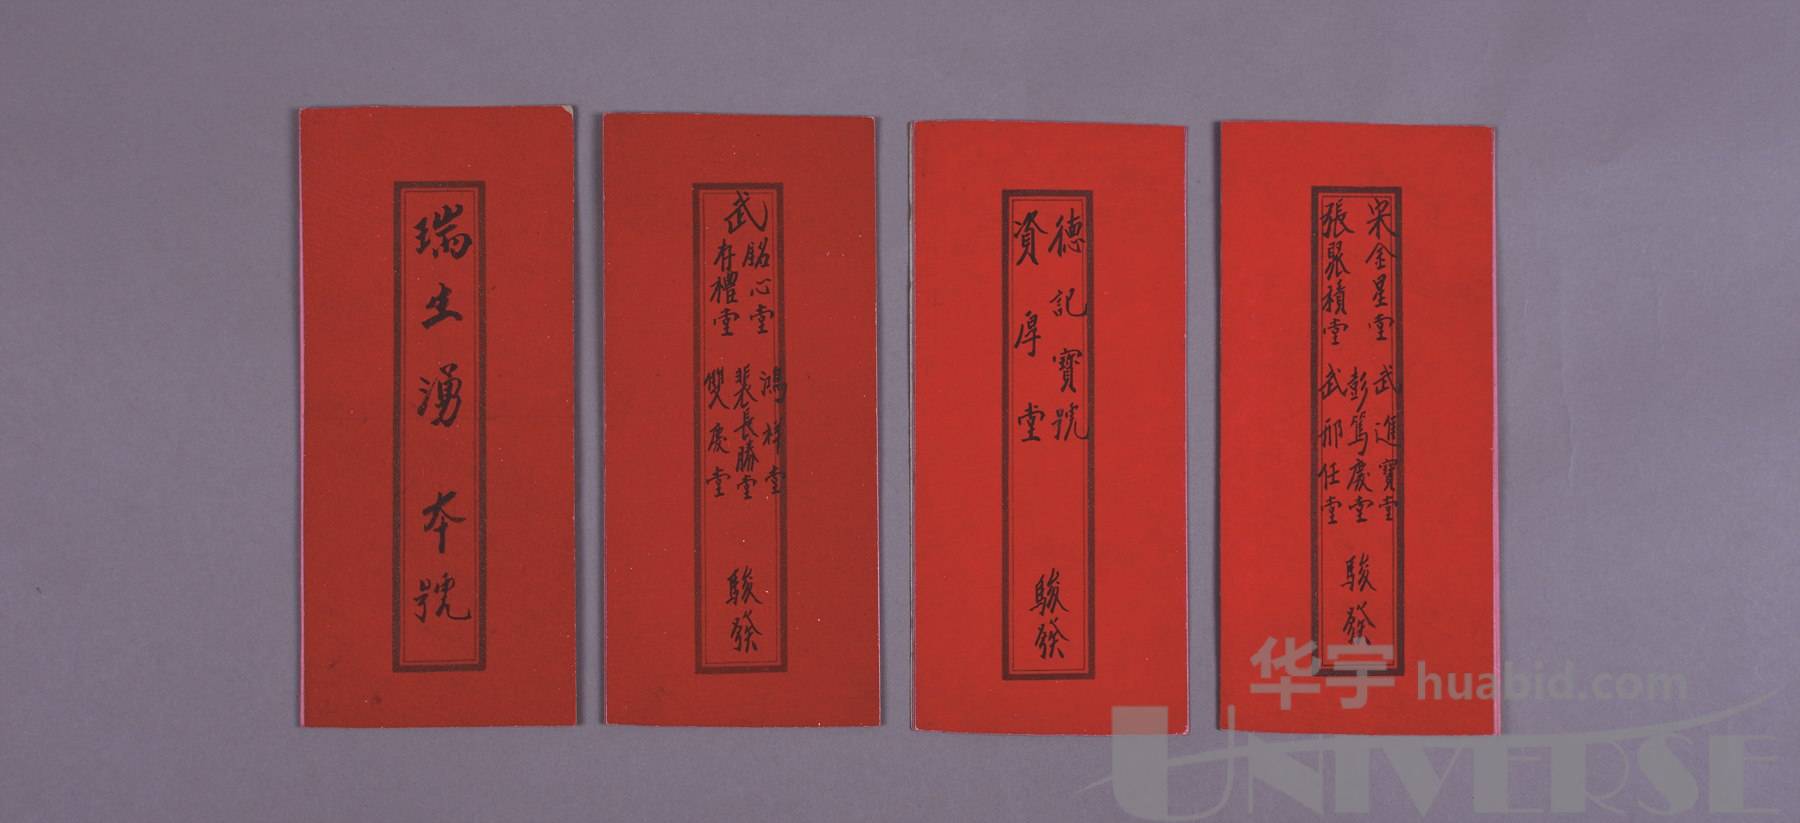 瑞生湧本號
武
銘心堂
存禮堂
鴻祥堂
裴長勝堂
雙慶堂
駿發
德記寶號
資厚堂
駿發
宋金星堂
張聚積堂
武進寶堂
彭篤慶堂
武邢任堂
駿發
华宇 huabid.com
UNIVERSE